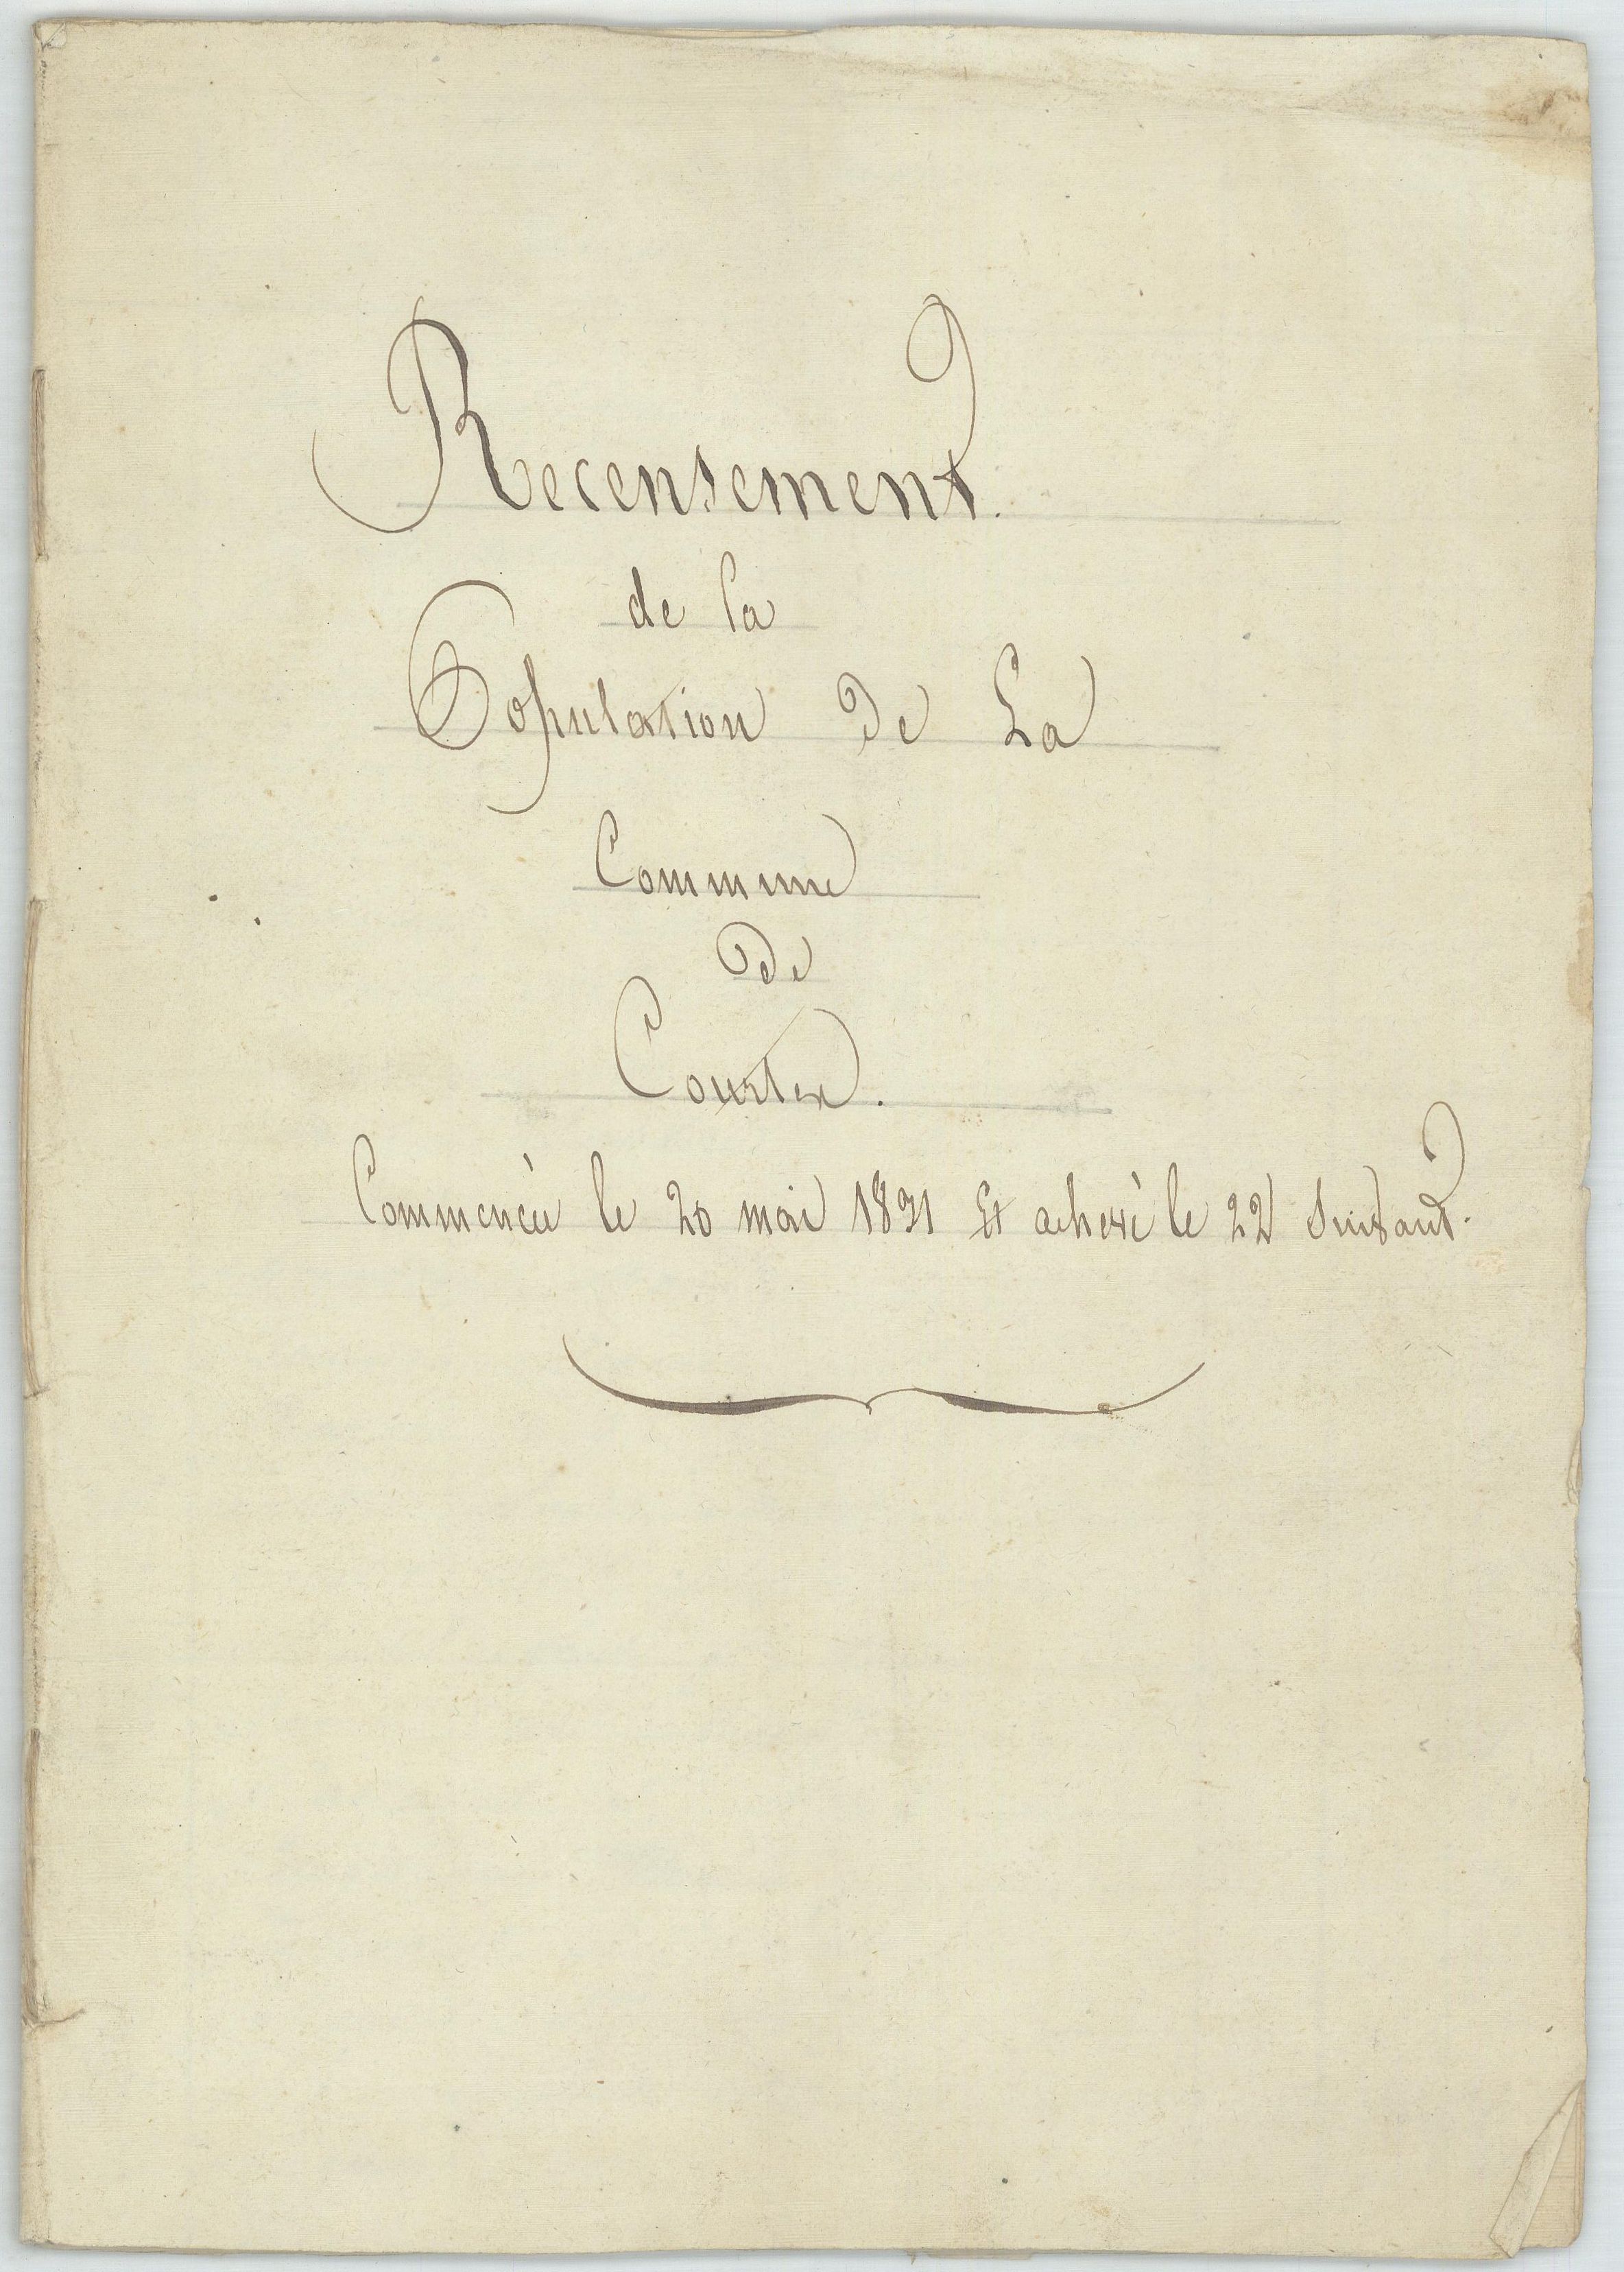 Recensement.
de la
Population de La
Commune
de
Courtex.
Commencée le 20 mai 1831 Et achevé le 22 Suivant.